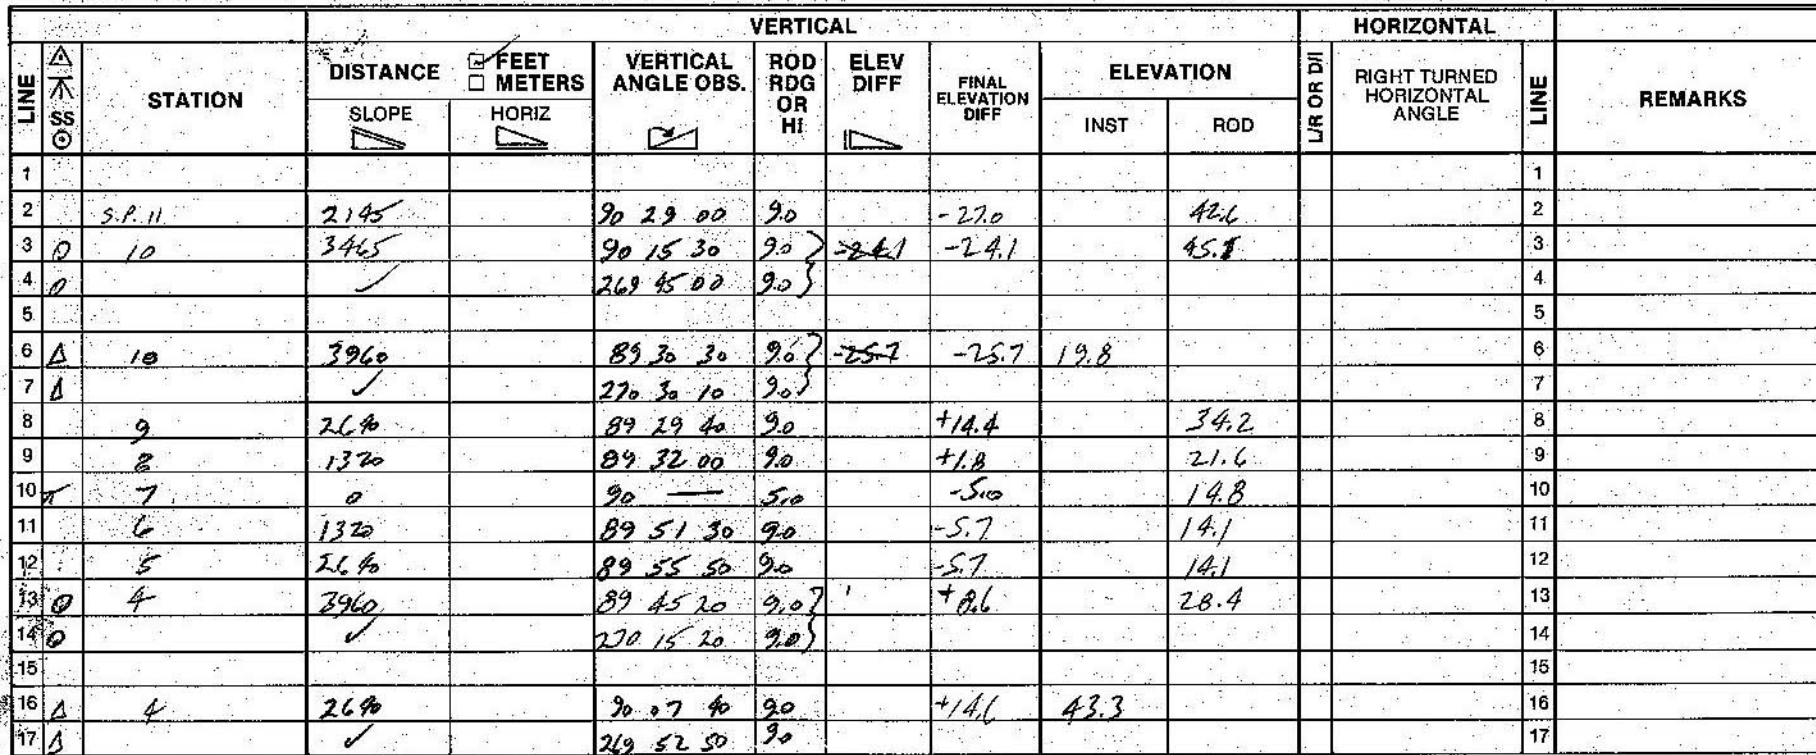 VERTICAL HORIZONTAL
LINE SS STATION DISTANCE FEET METERS VERTICAL ANGLE OBS. ROD RDG OR HI ELEV DIFF FINAL ELEVATION DIFF ELEVATION L/R OR D/I RIGHT TURNED HORIZONTAL ANGLE LINE REMARKS
SLOPE HORIZ INST ROD
1 1
2 S.P. 11 2145 90 29 00 9.0 -27.0 42.6 2
3 10 3465 90 15 30 9.0 -24.1 -24.1 45.5 3
4 ✓ 269 45 00 9.0 4
5 5
6 Δ 10 3960 89 30 30 9.0 -25.7 -25.7 19.8 6
7 Δ ✓ 270 30 10 9.0 7
8 9 2640 89 29 40 9.0 +14.4 34.2 8
9 8 1320 89 32 00 9.0 +1.8 21.6 9
10 7 0 90 — 5.0 -5.0 14.8 10
11 6 1320 89 51 30 9.0 -5.7 14.1 11
12 5 2640 89 55 50 9.0 -5.7 14.1 12
13 4 3960 89 45 20 9.0 +8.6 28.4 13
14 ✓ 270 15 20 9.0 14
15 15
16 Δ 4 2640 90 07 40 9.0 +14.6 43.3 16
17 Δ ✓ 269 52 50 9.0 17